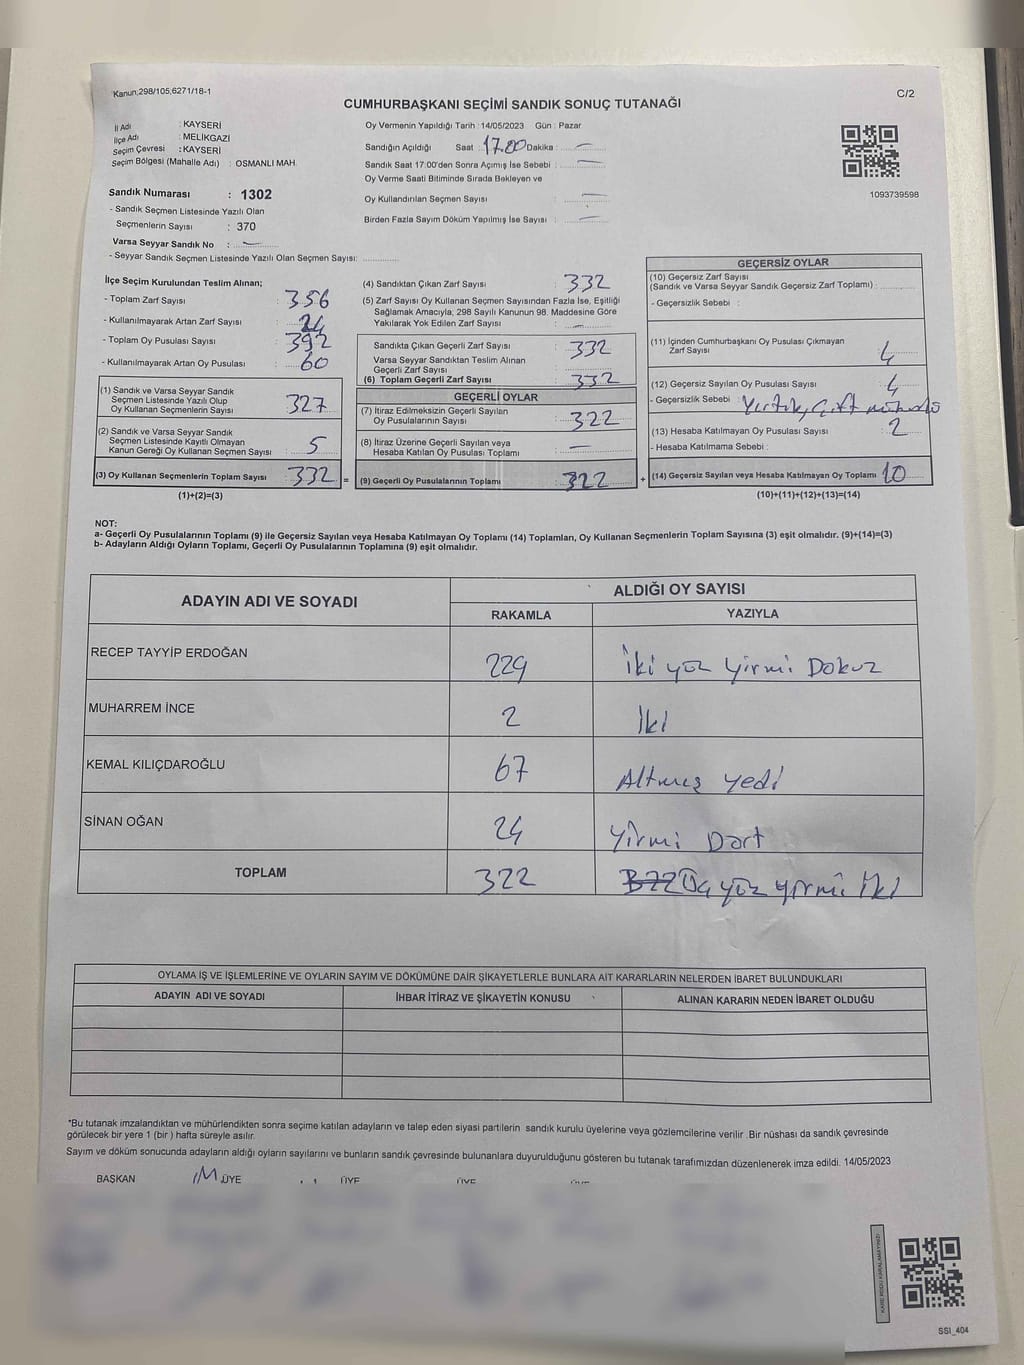 Kanun:298/105,6271/18-1
C/2
CUMHURBAŞKANI SEÇİMİ SANDIK SONUÇ TUTANAĞI
İl Adı : KAYSERİ
İlçe Adı : MELİKGAZİ
Seçim Çevresi : KAYSERİ
Seçim Bölgesi (Mahalle Adı) : OSMANLI MAH.
Sandık Numarası : 1302
- Sandık Seçmen Listesinde Yazılı Olan
Seçmenlerin Sayısı : 370
Varsa Seyyar Sandık No : —
- Seyyar Sandık Seçmen Listesinde Yazılı Olan Seçmen Sayısı:
Oy Vermenin Yapıldığı Tarih : 14/05/2023 Gün : Pazar
Sandığın Açıldığı Saat : 17.00 Dakika : —
Sandık Saat 17:00'den Sonra Açımış İse Sebebi : —
Oy Verme Saati Bitiminde Sırada Bekleyen ve
Oy Kullandırılan Seçmen Sayısı : —
Birden Fazla Sayım Döküm Yapılmış İse Sayısı : —
1093739598
İlçe Seçim Kurulundan Teslim Alınan;
- Toplam Zarf Sayısı : 356
- Kullanılmayarak Artan Zarf Sayısı : 24
- Toplam Oy Pusulası Sayısı : 392
- Kullanılmayarak Artan Oy Pusulası : 60
(1) Sandık ve Varsa Seyyar Sandık
Seçmen Listesinde Yazılı Olup
Oy Kullanan Seçmenlerin Sayısı : 327
(2) Sandık ve Varsa Seyyar Sandık
Seçmen Listesinde Kayıtlı Olmayan
Kanun Gereği Oy Kullanan Seçmen Sayısı : 5
(3) Oy Kullanan Seçmenlerin Toplam Sayısı : 332 =
(1)+(2)=(3)
(4) Sandıktan Çıkan Zarf Sayısı : 332
(5) Zarf Sayısı Oy Kullanan Seçmen Sayısından Fazla İse, Eşitliği
Sağlamak Amacıyla; 298 Sayılı Kanunun 98. Maddesine Göre
Yakılarak Yok Edilen Zarf Sayısı : —
Sandıkta Çıkan Geçerli Zarf Sayısı : 332
Varsa Seyyar Sandıktan Teslim Alınan
Geçerli Zarf Sayısı :
(6) Toplam Geçerli Zarf Sayısı : 332
GEÇERLİ OYLAR
(7) İtiraz Edilmeksizin Geçerli Sayılan
Oy Pusulalarının Sayısı : 322
(8) İtiraz Üzerine Geçerli Sayılan veya
Hesaba Katılan Oy Pusulası Toplamı : —
(9) Geçerli Oy Pusulalarının Toplamı : 322 +
GEÇERSİZ OYLAR
(10) Geçersiz Zarf Sayısı
(Sandık ve Varsa Seyyar Sandık Geçersiz Zarf Toplamı) :
- Geçersizlik Sebebi :
(11) İçinden Cumhurbaşkanı Oy Pusulası Çıkmayan
Zarf Sayısı : 4
(12) Geçersiz Sayılan Oy Pusulası Sayısı : 4
- Geçersizlik Sebebi : Yırtık, Çift
(13) Hesaba Katılmayan Oy Pusulası Sayısı : 2
- Hesaba Katılmama Sebebi :
(14) Geçersiz Sayılan veya Hesaba Katılmayan Oy Toplamı : 10
(10)+(11)+(12)+(13)=(14)
NOT:
a- Geçerli Oy Pusulalarının Toplamı (9) ile Geçersiz Sayılan veya Hesaba Katılmayan Oy Toplamı (14) Toplamları, Oy Kullanan Seçmenlerin Toplam Sayısına (3) eşit olmalıdır. (9)+(14)=(3)
b- Adayların Aldığı Oyların Toplamı, Geçerli Oy Pusulalarının Toplamına (9) eşit olmalıdır.
ADAYIN ADI VE SOYADI ALDIĞI OY SAYISI
RAKAMLA YAZIYLA
RECEP TAYYİP ERDOĞAN 229 İki yüz Yirmi Dokuz
MUHARREM İNCE 2 İki
KEMAL KILIÇDAROĞLU 67 Altmış yedi
SİNAN OĞAN 24 Yirmi Dört
TOPLAM 322 Üç yüz yirmi İki
OYLAMA İŞ VE İŞLEMLERİNE VE OYLARIN SAYIM VE DÖKÜMÜNE DAİR ŞİKAYETLERLE BUNLARA AİT KARARLARIN NELERDEN İBARET BULUNDUKLARI
ADAYIN ADI VE SOYADI İHBAR İTİRAZ VE ŞİKAYETİN KONUSU ALINAN KARARIN NEDEN İBARET OLDUĞU
*Bu tutanak imzalandıktan ve mühürlendikten sonra seçime katılan adayların ve talep eden siyasi partilerin sandık kurulu üyelerine veya gözlemcilerine verilir .Bir nüshası da sandık çevresinde
görülecek bir yere 1 (bir ) hafta süreyle asılır.
Sayım ve döküm sonucunda adayların aldığı oyların sayılarını ve bunların sandık çevresinde bulunanlara duyurulduğunu gösteren bu tutanak tarafımızdan düzenlenerek imza edildi. 14/05/2023
BAŞKAN ÜYE ÜYE ÜYE
KARE KODU KARALAMAYINIZ!
SSI_404